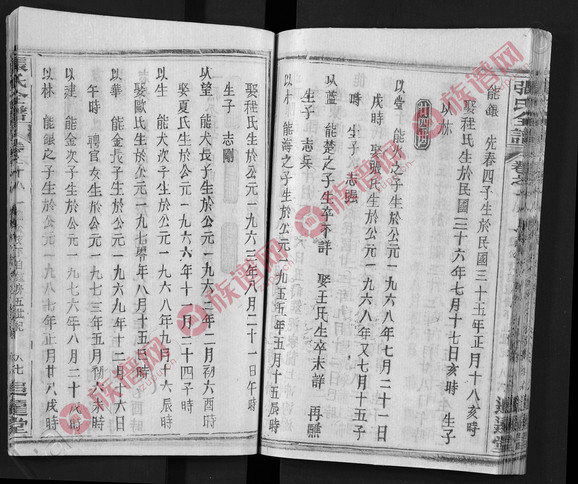 張氏合譜
達達堂
能雄 先春四子生於民國三十五年正月十八亥時
娶程氏生於民國三十六年七月十七亥時 生子
以林
廿四四
以堂 能 之子生於公元一九六八年七月二十一日
戌時 娶張氏生於公元一九六八年又七月十五子
時 生子 志
以蓝 能楚之子生卒不詳 娶王氏生卒未詳 再醮
生子 志兵
以 能海之子生於公元一九五五年五月十五辰時
娶程氏生於公元一九六三年八月二十一日午時
生子 志剛
以望 能大長子生於公元一九六三年二月初六酉時
娶夏氏生於公元一九六六年十一月二十四子時
以 能大次子生於公元一九六八年九月十六辰時
娶歐氏生於公元一九七零年八月十五日子時
以華 能金長子生於公元一九六九年十二月十六日
午時 聘官女生於公元一九七三年五月初六亥時
以建 能金次子生於公元一九七六年八月二十戌時
以林 能銀之子生於公元一九八七年正月廿八戌時
張氏合譜
八七
族譜网